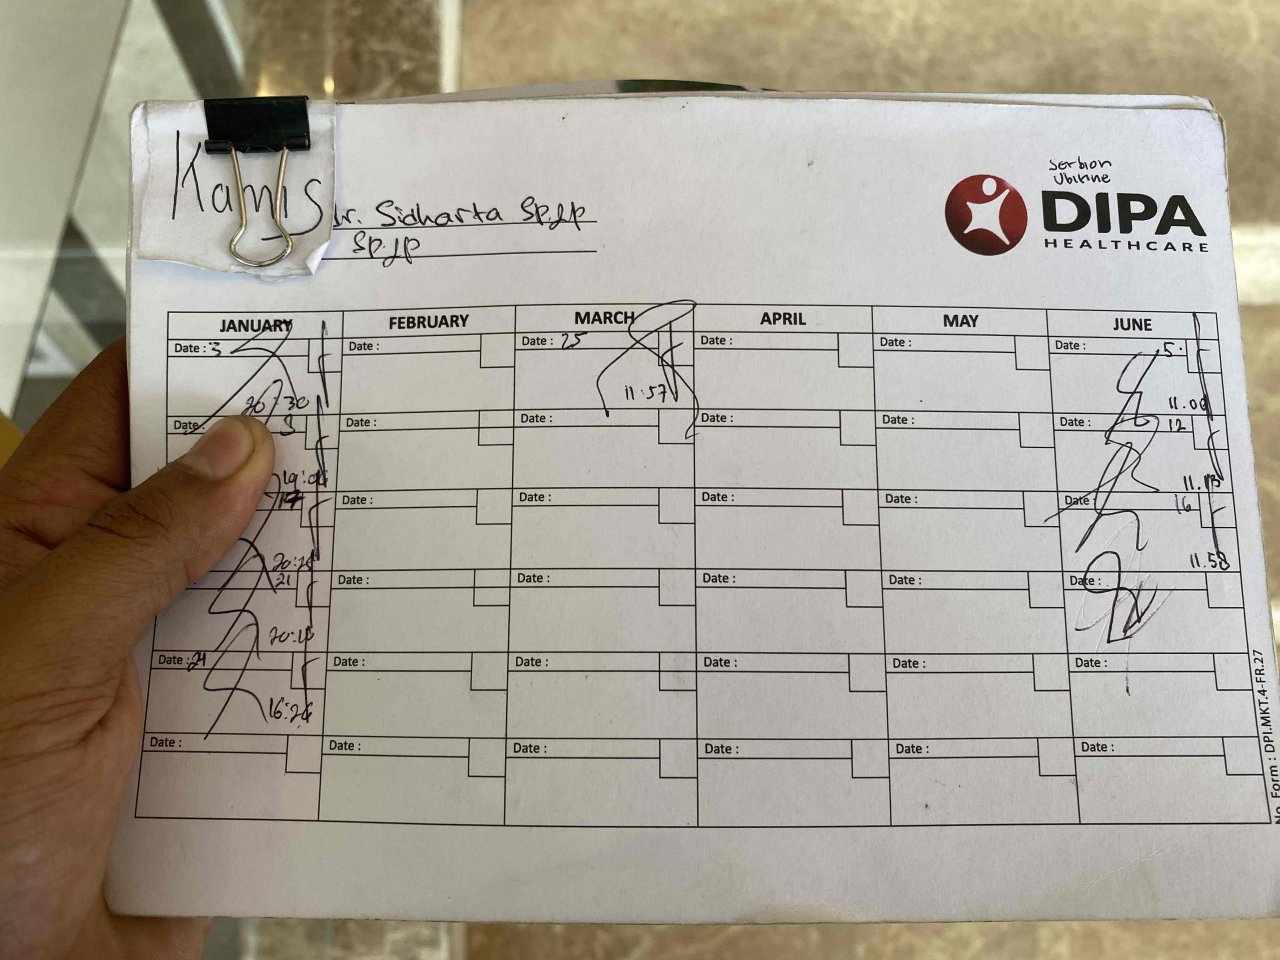 Kamis
dr. Sidharta Sp.JP
Sp.JP
Serbion
Ubinne
DIPA
HEALTHCARE
JANUARY FEBRUARY MARCH APRIL MAY JUNE
Date : 3 Date : Date : 25 Date : Date : Date : 5
20:30 11:57 11.00
Date : 8 Date : Date : Date : Date : Date : 12
11.13
17 Date : Date : Date : Date : Date : 16
11.58
21 Date : Date : Date : Date : Date :
Date : 24 Date : Date : Date : Date : Date :
16:26
Date : Date : Date : Date : Date : Date :
No. Form : DPI.MKT.4-FR.27